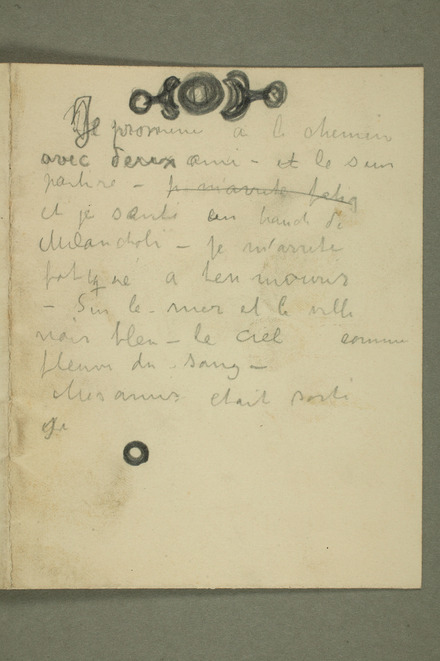 Je promene a le chemin
avec deux ami - et le sun
partire - Je m'arrete fatig
et je sante un
Melancholi - Je m'arrete
fatigé a
- Sur le mer et le ville
noir bleu - le ciel comme
fleuns du sang -
Mes amis etait sorti
eje